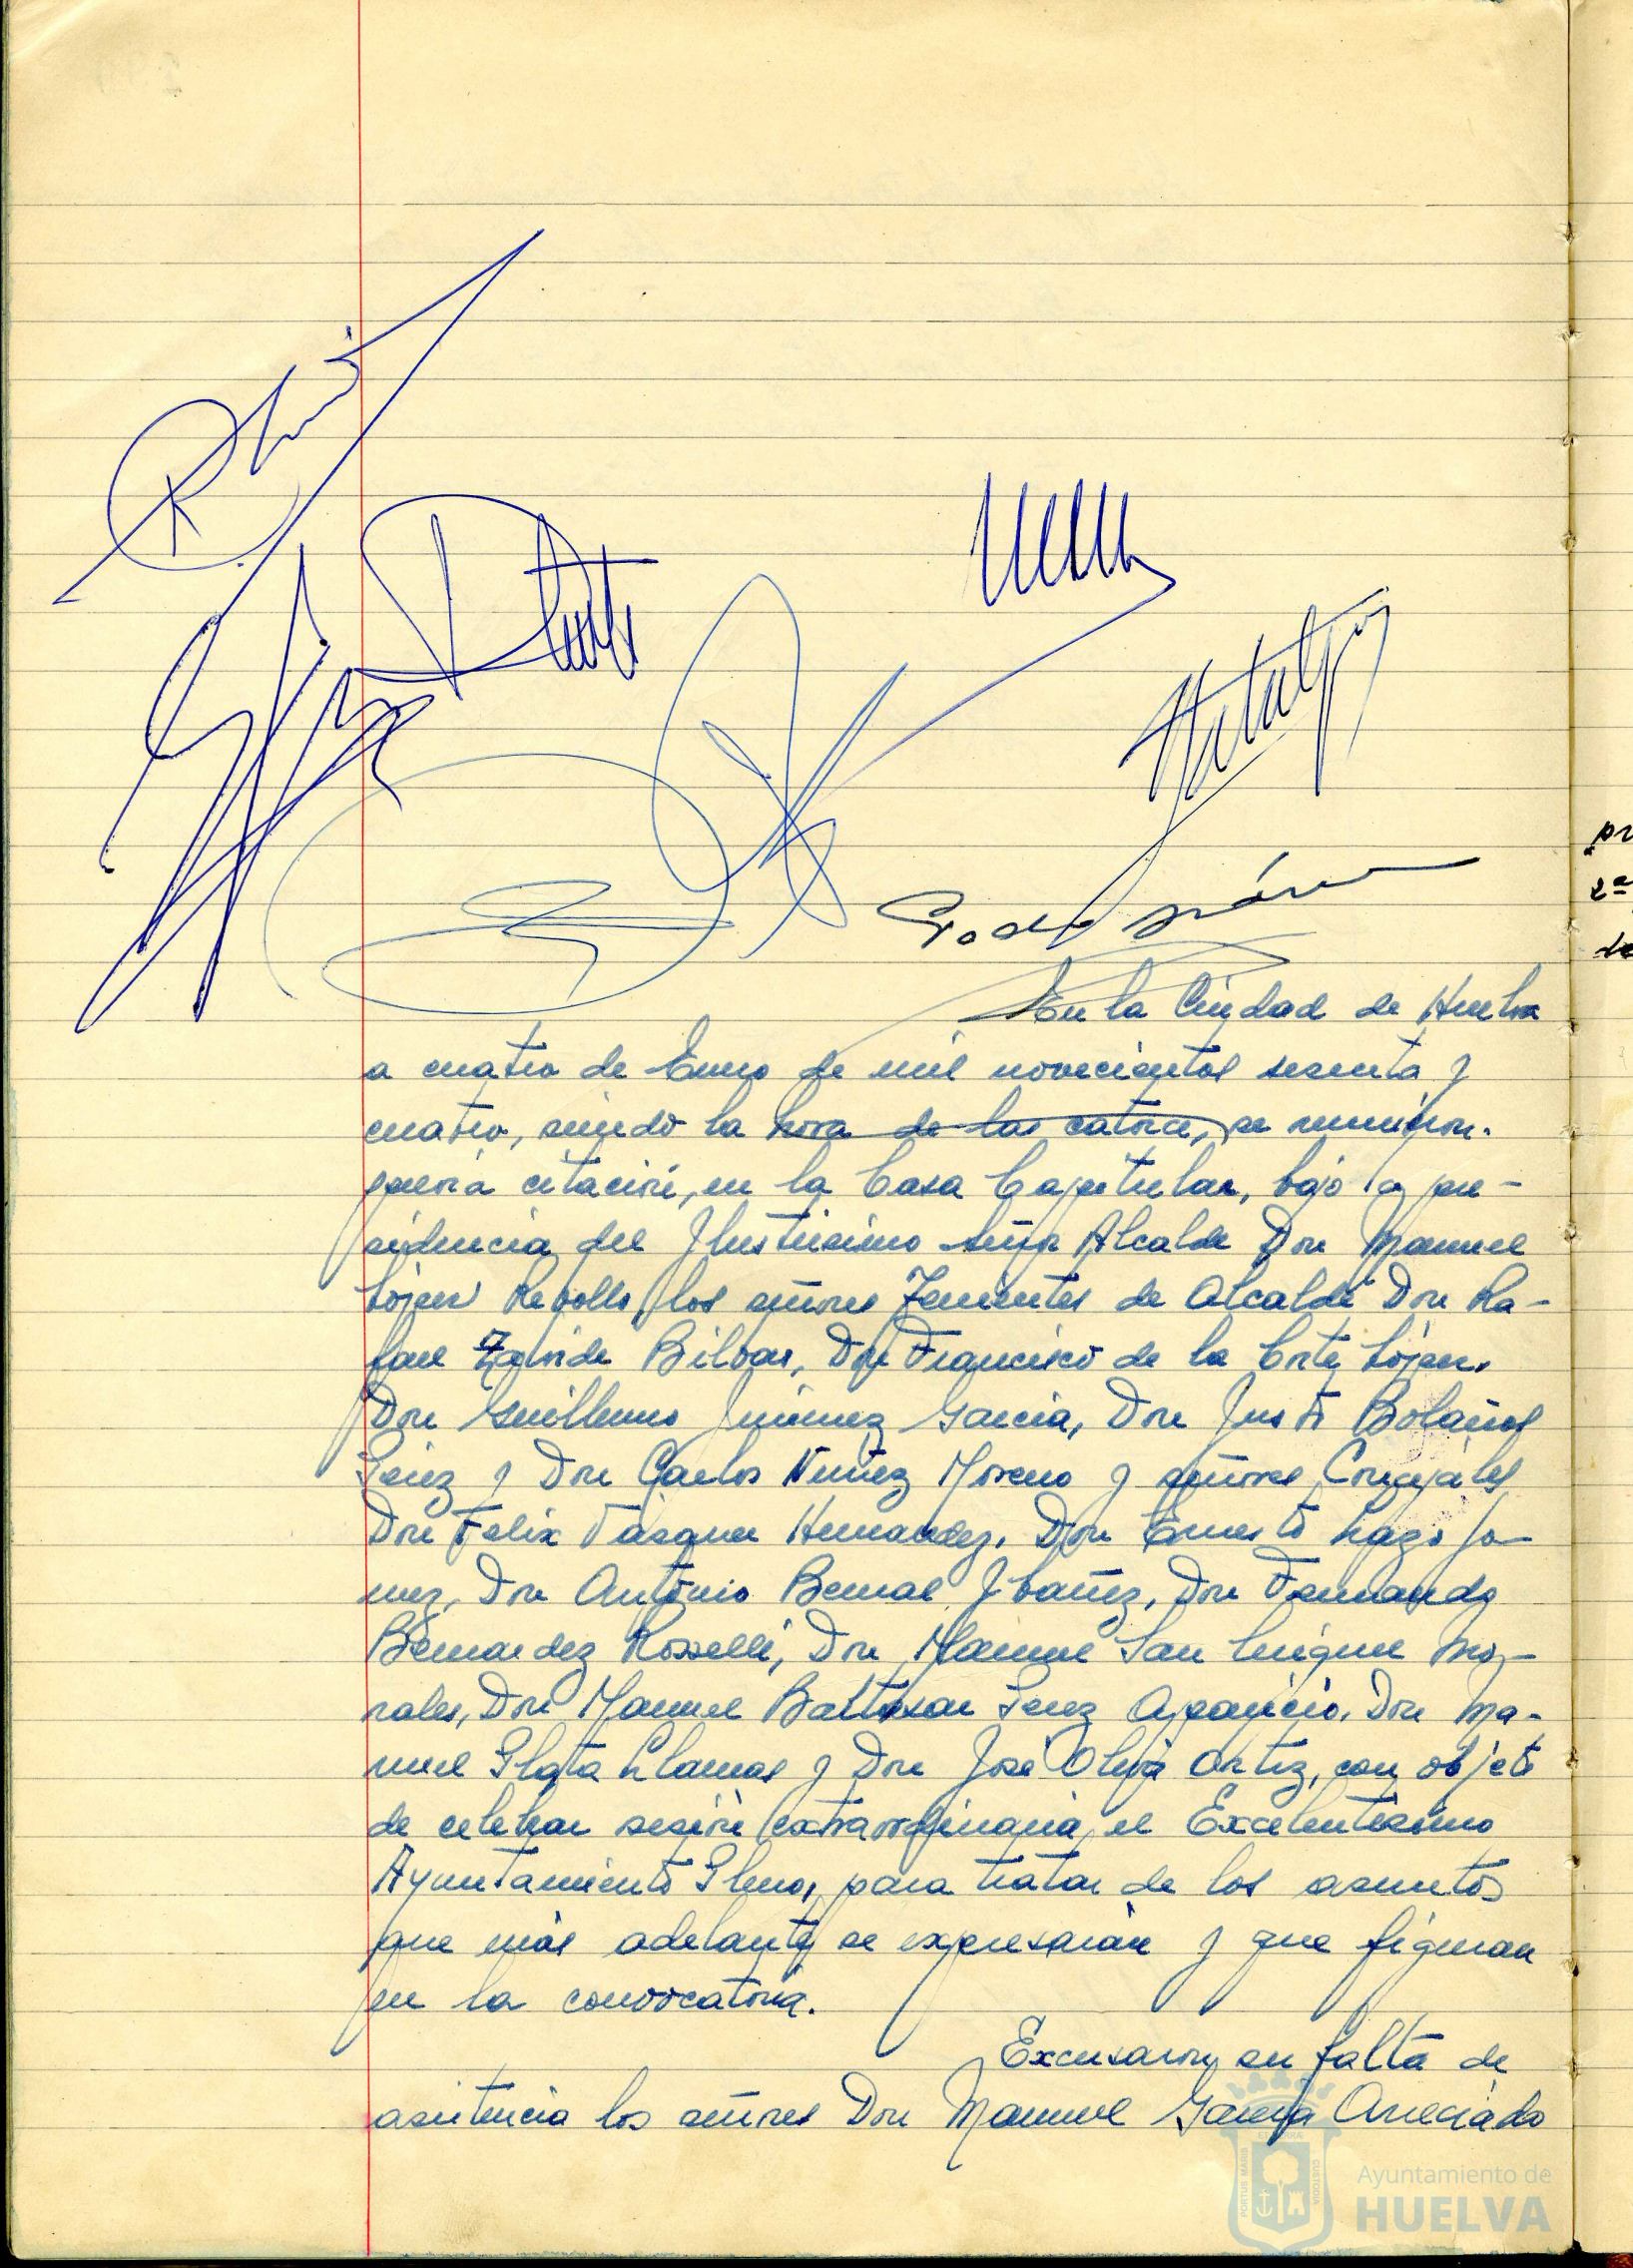 En la Ciudad de Huelva
a cuatro de Enero de mil novecientos sesenta y
cuatro, siendo la hora de las catorce, se reunieron.
previa citación, en la Casa Capitular, bajo la pre-
sidencia del Ilustrisimo señor Alcalde Don Manuel
López Rebollo, los señores Tenientes de Alcalde Don Ra-
fael Bilbao, Don Francisco de la Corte López.
Don Guillermo Jimenez Garcia, Don Justo Bolaños
Perez y Don Carlos Nuñez Moreno y señores Concejales
Don Felix Vasquez Hernandez. Don Ernesto Lazo Ja-
mez, Don Antonio Bernal Ibañez, Don Fernando
Bernardez Rosselli, Don Manuel San Miguel Mo-
rales, Don Manuel Baltasar Perez Aparicio. Don Ma-
nuel Plata Llamas y Don José Oliva Ortiz, con objeto
de celebrar sesión extraordinaria, el Excelentisimo
Ayuntamiento Pleno, para tratar de los asuntos
que más adelante se expresarán y que figuran
en la convocatoria.
Excusaron su falta de
asistencia los señores Don Manuel Garcia Arreciado
pr
2ª
de
Ayuntamiento de
HUELVA